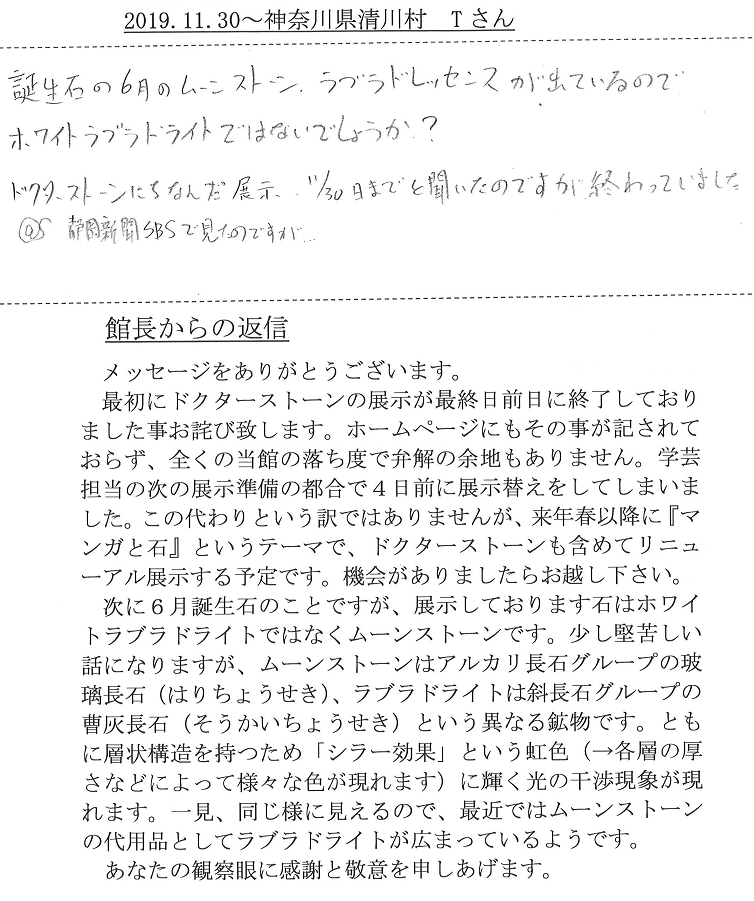 2019.11.30～神奈川県清川村　Tさん
誕生石の6月のムーンストーン、ラブラドレッセンスが出ているので
ホワイトラブラドライトではないでしょうか？
ドクターストーンにちなんだ展示、11/30日までと聞いたのですが終わっていました
静岡新聞SBSで見たのですが…
館長からの返信
メッセージをありがとうございます。
最初にドクターストーンの展示が最終日前日に終了しており
ました事お詫び致します。ホームページにもその事が記されて
おらず、全くの当館の落ち度で弁解の余地もありません。学芸
担当の次の展示準備の都合で４日前に展示替えをしてしまいま
した。この代わりという訳ではありませんが、来年春以降に『マ
ンガと石』というテーマで、ドクターストーンも含めてリニュ
ーアル展示する予定です。機会がありましたらお越し下さい。
次に６月誕生石のことですが、展示しております石はホワイ
トラブラドライトではなくムーンストーンです。少し堅苦しい
話になりますが、ムーンストーンはアルカリ長石グループの玻
璃長石（はりちょうせき）、ラブラドライトは斜長石グループの
曹灰長石（そうかいちょうせき）という異なる鉱物です。とも
に層状構造を持つため「シラー効果」という虹色（→各層の厚
さなどによって様々な色が現れます）に輝く光の干渉現象が現
れます。一見、同じ様に見えるので、最近ではムーンストーン
の代用品としてラブラドライトが広まっているようです。
あなたの観察眼に感謝と敬意を申しあげます。